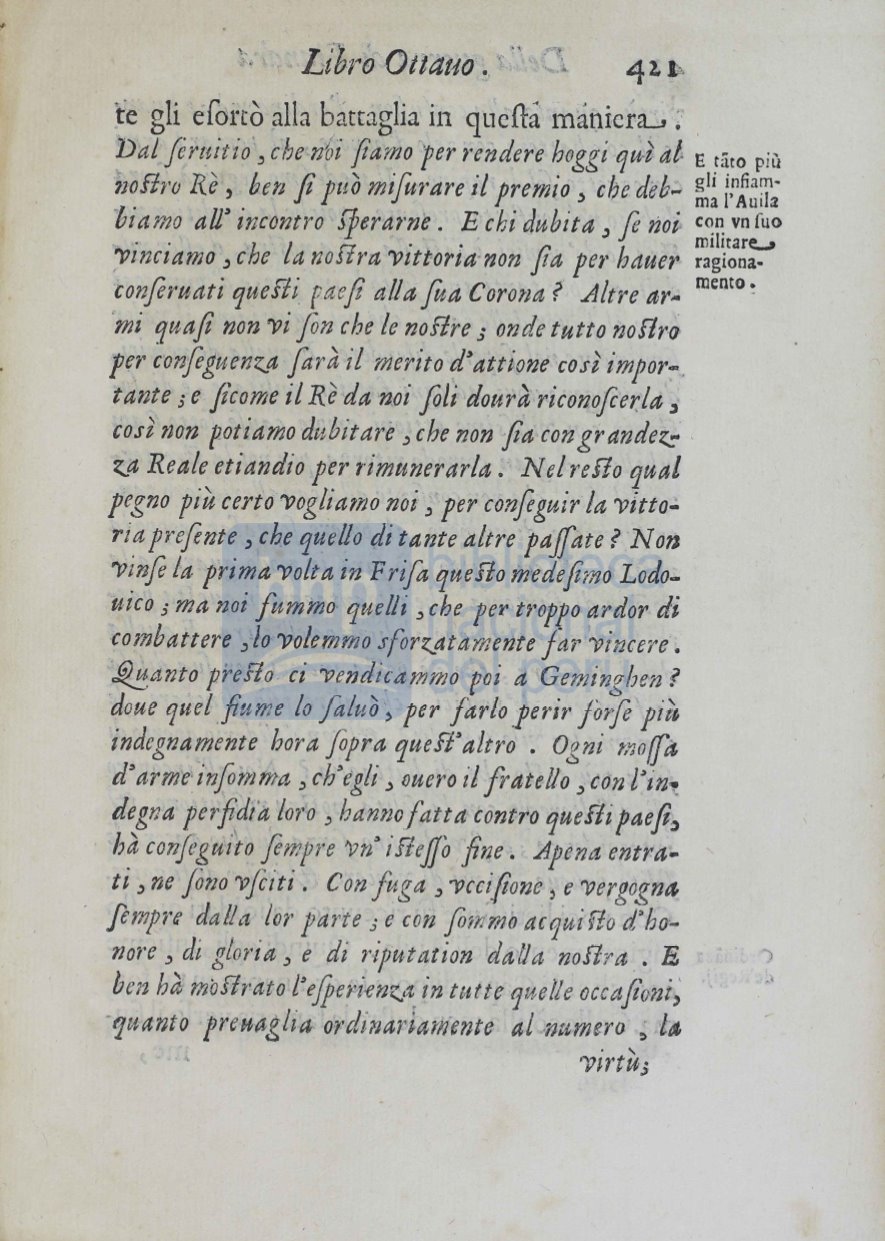 Libro Ottauo. 421
te gli eſortò alla battaglia in queſta maniera.
Dal ſeruitio, che noi ſiamo per rendere hoggi quì al
noſtro Rè, ben ſi può miſurare il premio, che deb-
biamo all' incontro ſperarne. E chi dubita, ſe noi
vinciamo, che la noſtra vittoria non ſia per hauer
conſeruati queſti paeſi alla ſua Corona? Altre ar-
mi quaſi non vi ſon che le noſtre; onde tutto noſtro
per conſeguenza ſarà il merito d'attione così impor-
tante; e ſicome il Rè da noi ſoli dourà riconoſcerla,
così non potiamo dubitare, che non ſia con grandez-
za Reale etiandio per rimunerarla. Nel reſto qual
pegno più certo vogliamo noi, per conſeguir la vitto-
ria preſente, che quello di tante altre paſſate? Non
vinſe la prima volta in Friſa queſto medeſimo Lodo-
uico; ma noi fummo quelli, che per troppo ardor di
combattere, lo volemmo sforzatamente far vincere.
Quanto preſto ci vendicammo poi a Geminghen?
doue quel fiume lo ſaluò, per farlo perir forſe più
indegnamente hora ſopra queſt'altro. Ogni moſſa
d'arme inſomma, ch'egli, ouero il fratello, con l'in-
degna perfidia loro, hanno fatta contro queſti paeſi,
hà conſeguito ſempre vn' iſteſſo fine. Apena entra-
ti, ne ſono vſciti. Con fuga, vcciſione, e vergogna
ſempre dalla lor parte; e con ſommo acquiſto d'ho-
nore, di gloria, e di riputation dalla noſtra. E
ben hà moſtrato l'eſperienza in tutte quelle occaſioni,
quanto preuaglia ordinariamente al numero, la
virtù;
E tāto più
gli infiam-
ma l'Auila
con vn ſuo
militare
ragiona-
mento.